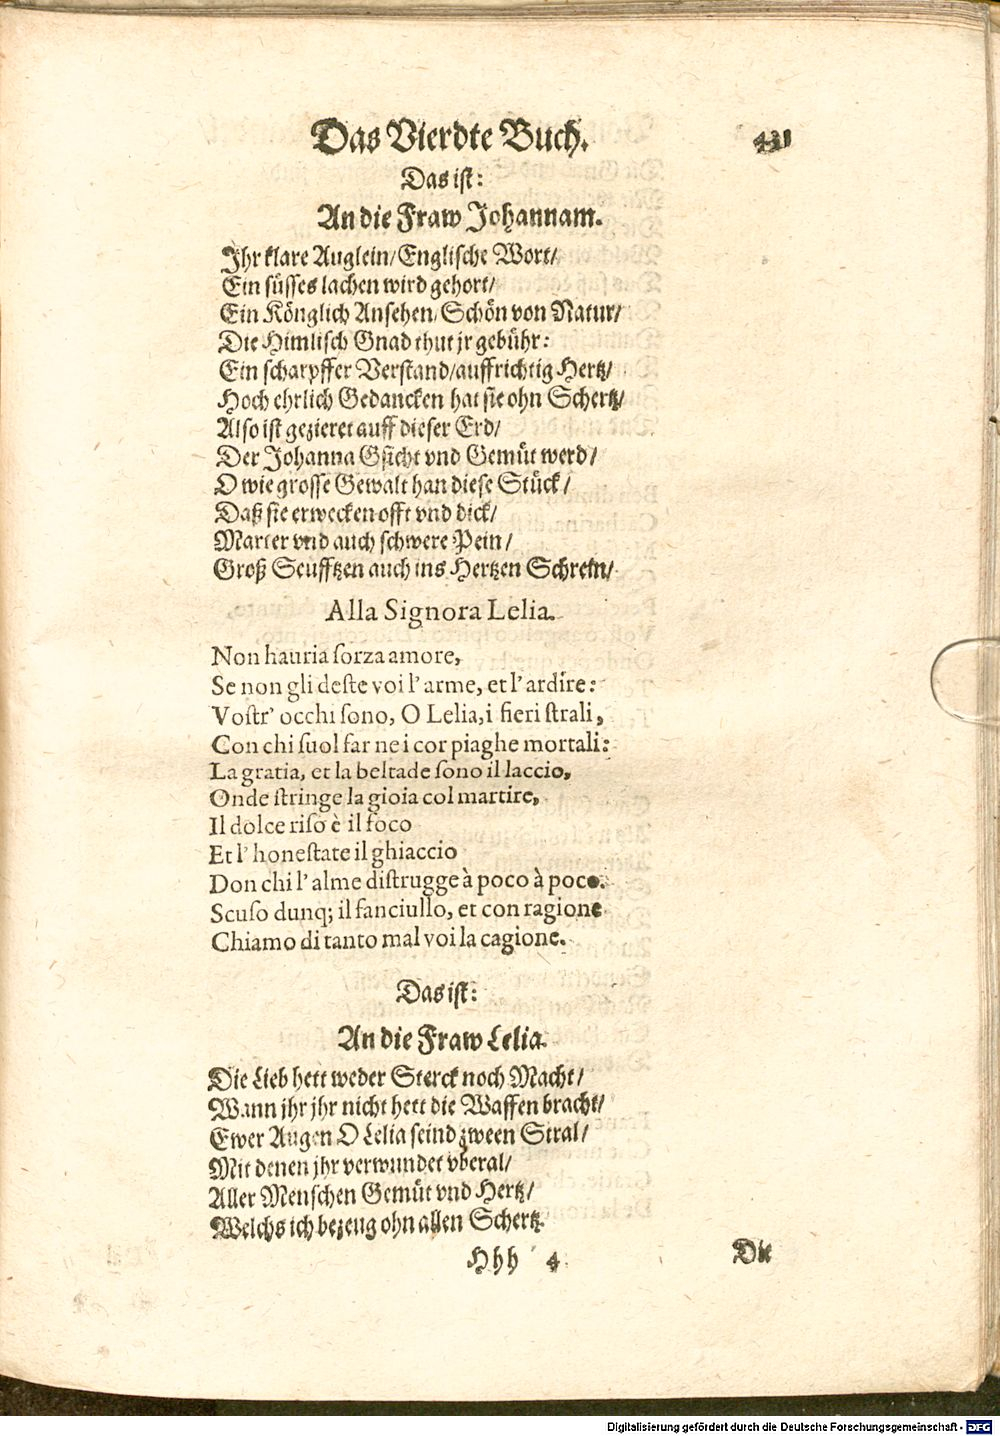 Das Vierdte Buch. 431
Das ist:
An die Fraw Johannam.
Jhr klare Auglein/Englische Wort/
Ein süsses lachen wird gehort/
Ein Könglich Ansehen/Schön von Natur/
Die Himlisch Gnad thut jr gebühr:
Ein scharpffer Verstand/auffrichtig Hertz/
Hoch ehrlich Gedancken hat sie ohn Schertz/
Also ist gezieret auff dieser Erd/
Der Johanna Gsicht vnd Gemüt werd/
O wie grosse Gewalt han diese Stück/
Daß sie erwecken offt vnd dick/
Marter vnd auch schwere Pein/
Groß Seufftzen auch ins Hertzen Schrein/
Alla Signora Lelia.
Non hauria forza amore,
Se non gli deste voi l'arme, et l'ardire:
Vostr' occhi sono, O Lelia, i fieri strali,
Con chi suol far ne i cor piaghe mortali:
La gratia, et la beltade sono il laccio,
Onde stringe la gioia col martire,
Il dolce riso è il foco
Et l'honestate il ghiaccio
Don chi l'alme distrugge à poco à poco.
Scuso dunq; il fanciullo, et con ragione
Chiamo di tanto mal voi la cagione.
Das ist:
An die Fraw Lelia.
Die Lieb hett weder Sterck noch Macht/
Wann jhr jhr nicht hett die Waffen bracht/
Ewer Augen O Lelia seind zween Stral/
Mit denen jhr verwundet vberal/
Aller Menschen Gemüt vnd Hertz/
Welchs ich bezeug ohn allen Schertz.
Hhh 4 Die
Digitalisierung gefördert durch die Deutsche Forschungsgemeinschaft - DFG